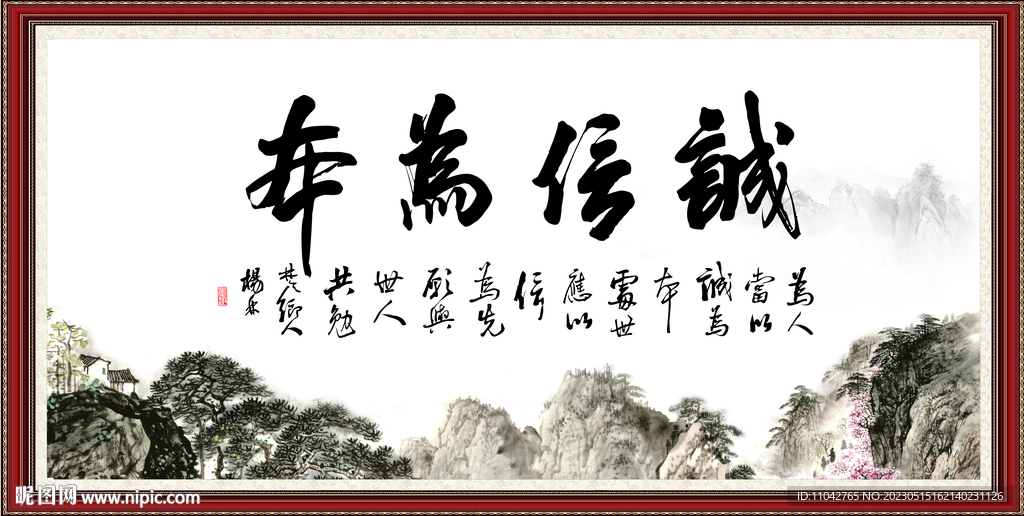 誠信為本
為人
當以
誠為
本
處世
應以
信
為先
願與
世人
共勉
楚鄉人
楊森
昵图网 www.nipic.com
ID:11042765 NO:20230515162140231126